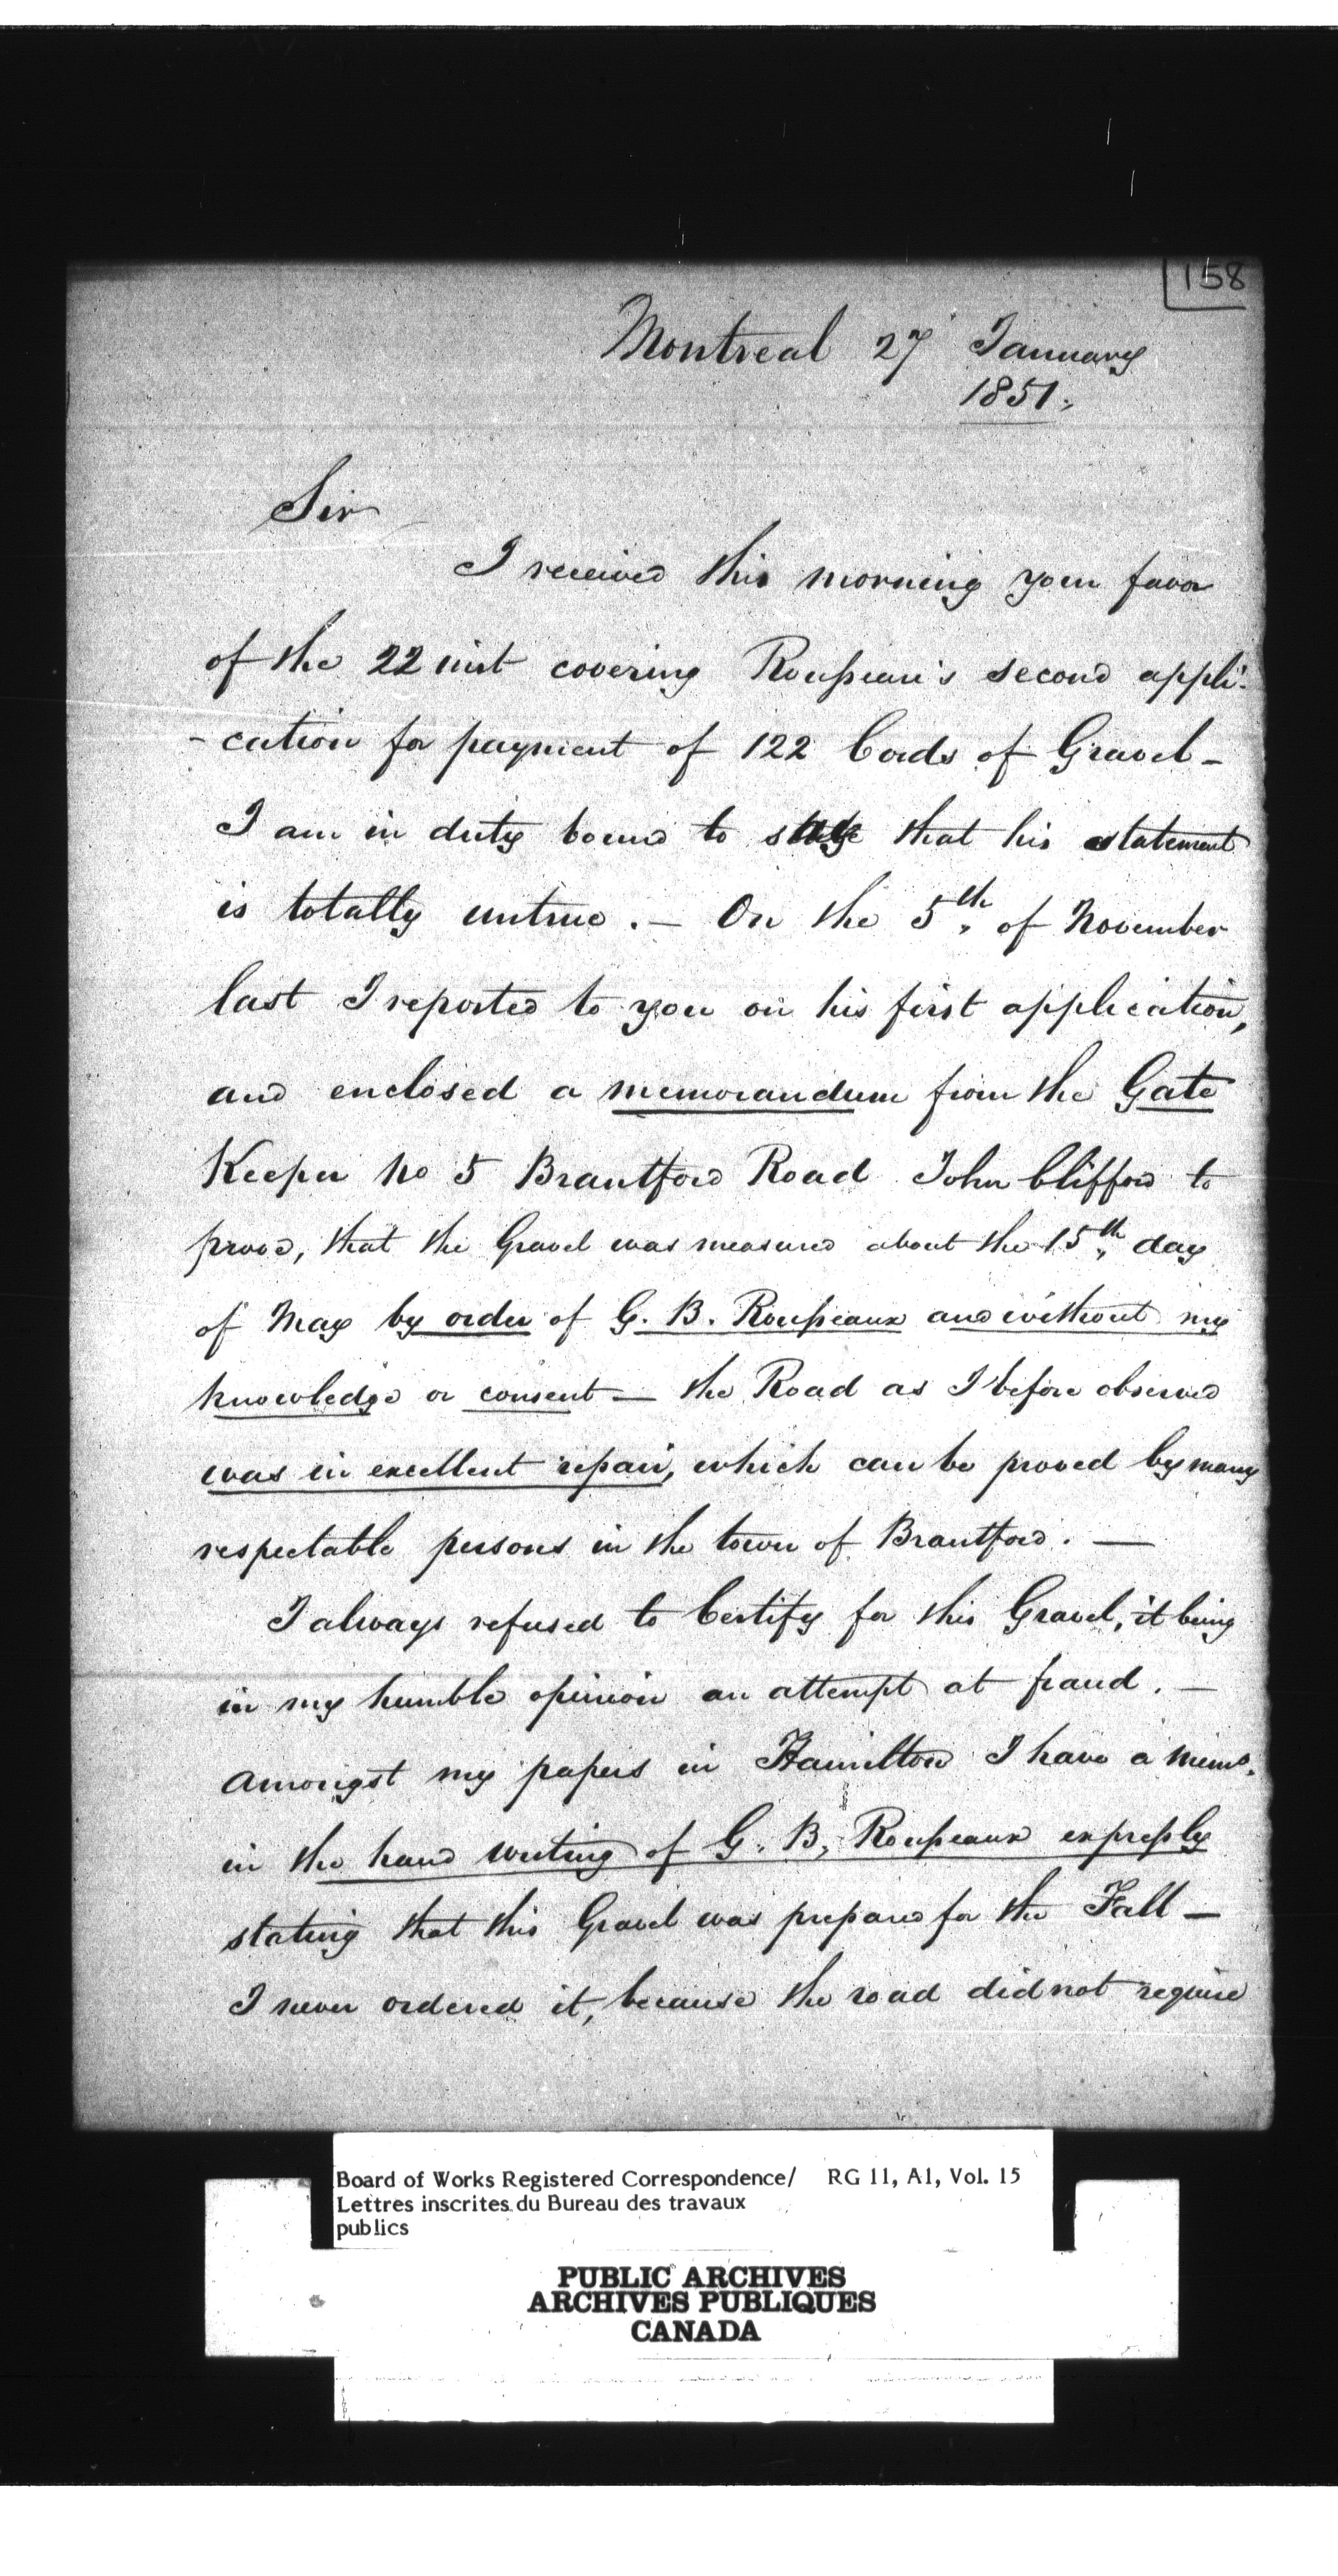 158
Montreal 27 January
1851.
Sir
I received this morning your favor
of the 22 inst covering Rousseau's second appli-
-cation for payment of 122 Cords of Gravel -
I am in duty bound to state that his statement
is totally untrue. - On the 5th of November
last I reported to you on his first application,
and enclosed a memorandum from the Gate
Keeper No 5 Brantford Road John Clifford to
prove, that the Gravel was measured about the 15th day
of May by order of G. B. Rousseaux and without my
knowledge or consent - the Road as I before observed
was in excellent repair, which can be proved by many
respectable persons in the town of Brantford. -
I always refused to Certify for this Gravel, it being
in my humble opinion an attempt at fraud. -
Amongst my papers in Hamilton I have a memo.
in the hand writing of G. B. Rousseaux expressly
stating that this Gravel was prepared for the Fall -
I never ordered it, because the road did not require
Board of Works Registered Correspondence/ RG 11, A1, Vol. 15
Lettres inscrites du Bureau des travaux
publics
PUBLIC ARCHIVES
ARCHIVES PUBLIQUES
CANADA